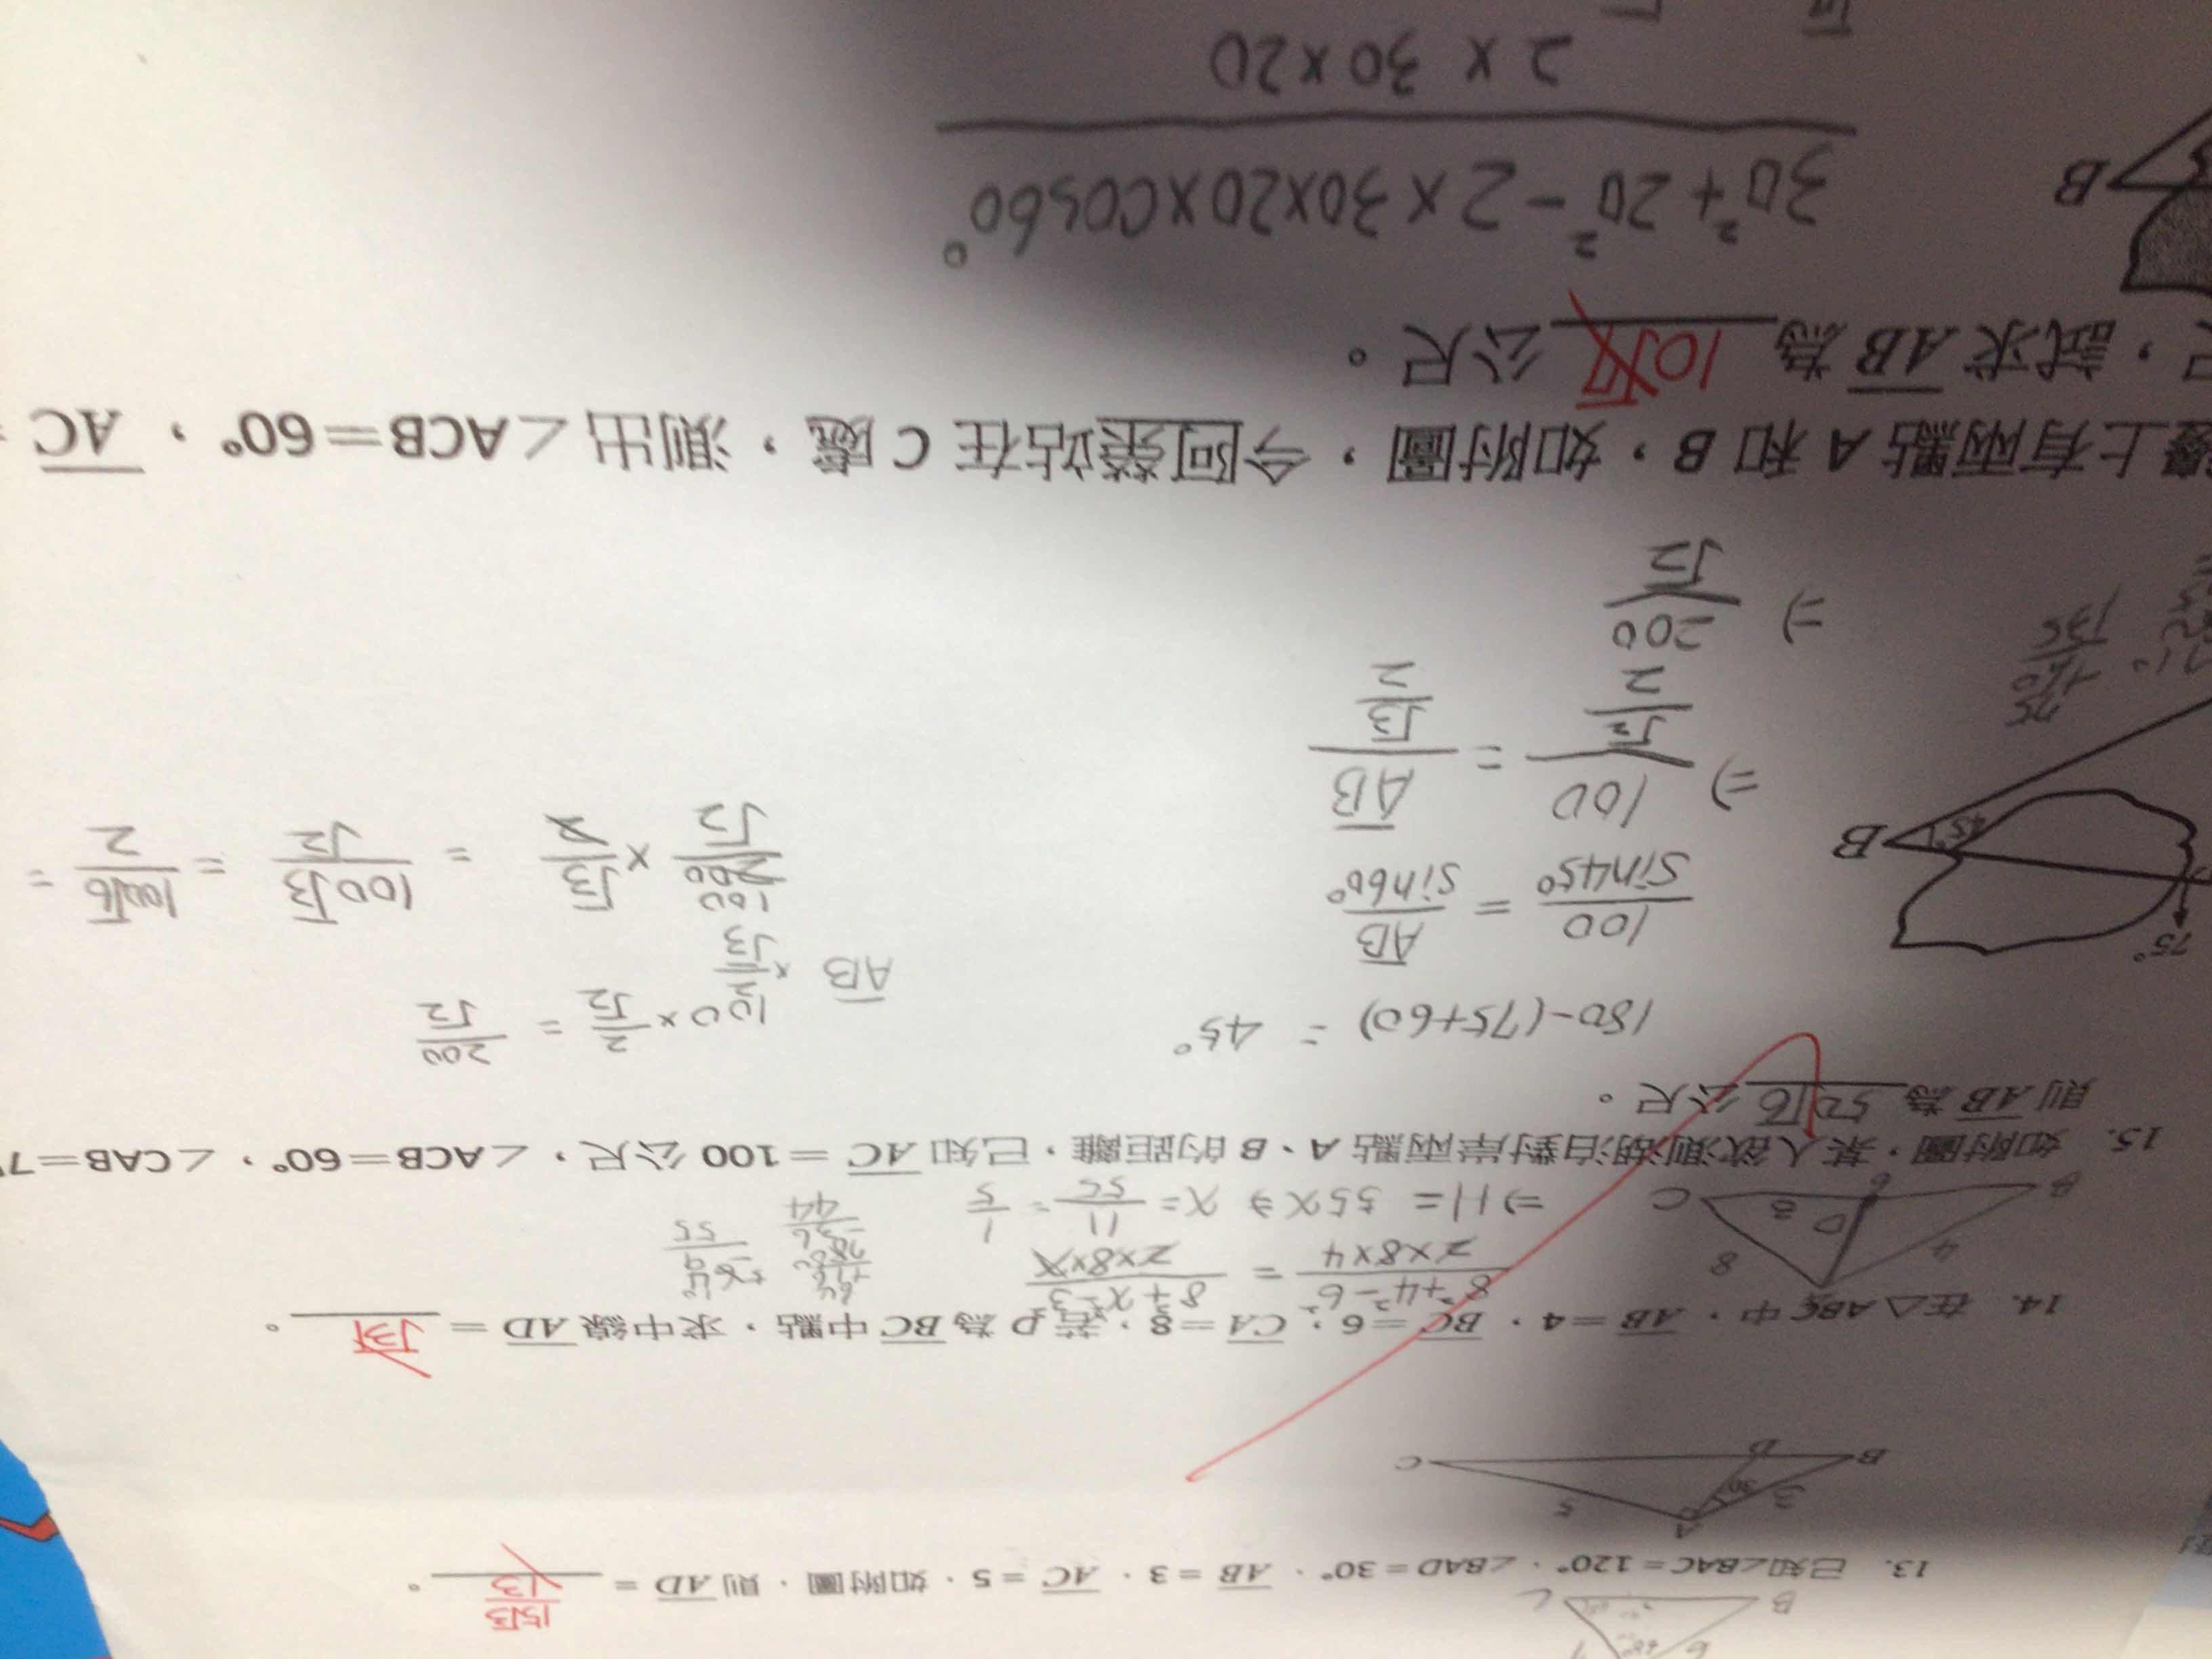 13. 已知∠BAC=120°，∠BAD=30°，AB=3，AC=5，如附圖，則AD=
15√3
13
A
3
30
5
B
D
C
14. 在△ABC中，AB=4，BC=6，CA=8，若D為BC中點，求中線AD=√31。
8²+4²-6²
2×8×4
=
8²+x²-3²
2×8×x
⇒11=55x⇒x=11/55=1/5
64
+16
80
-36
44
64
-9
55
4
8
B
D
3
C
15. 如附圖，某人欲測湖泊對岸兩點A、B的距離，已知AC=100公尺，∠ACB=60°，∠CAB=7
則AB為50√6公尺。
180-(75+60) = 45°
100/sin45° = AB/sin60°
⇒ 100/(√2/2) = AB/(√3/2)
⇒ 200/√2
100×2/√2=200/√2
AB×2/√3
200/√2×√3/2=100√3/√2=100√6/2=
100
75°
45°
B
75
+60
135
邊上有兩點A和B，如附圖，今阿榮站在C處，測出∠ACB=60°，AC
尺，試求AB為10√7公尺。
30²+20²-2×30×20×cos60°
2×30×20
B